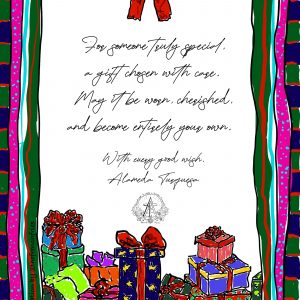 For someone truly special,
a gift chosen with care.
May it be worn, cherished,
and become entirely your own.
With every good wish,
Alameda Turquesa